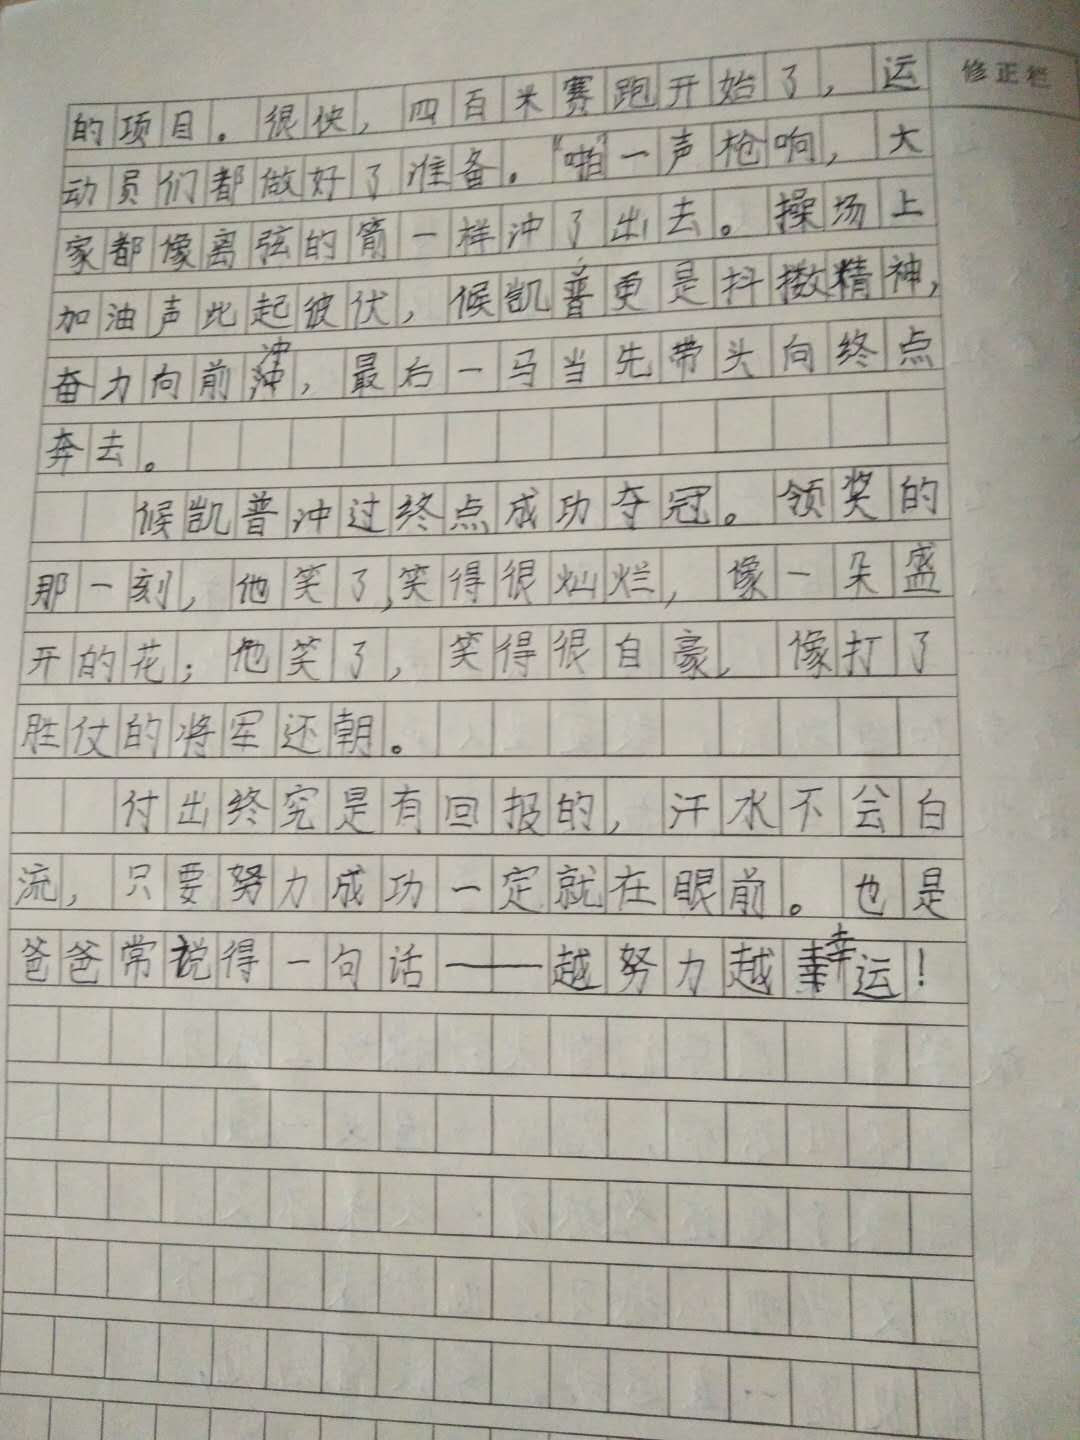 修正栏
的项目。很快，四百米赛跑开始了，运
动员们都做好了准备。“啪”一声枪响，大
家都像离弦的箭一样冲了出去。操场上
加油声此起彼伏，候凯普更是抖擞精神，
奋力向前冲，最后一马当先带头向终点
奔去。
候凯普冲过终点成功夺冠。领奖的
那一刻，他笑了，笑得很灿烂，像一朵盛
开的花；他笑了，笑得很自豪，像打了
胜仗的将军还朝。
付出终究是有回报的，汗水不会白
流，只要努力成功一定就在眼前。也是
爸爸常说得一句话——越努力越幸运！